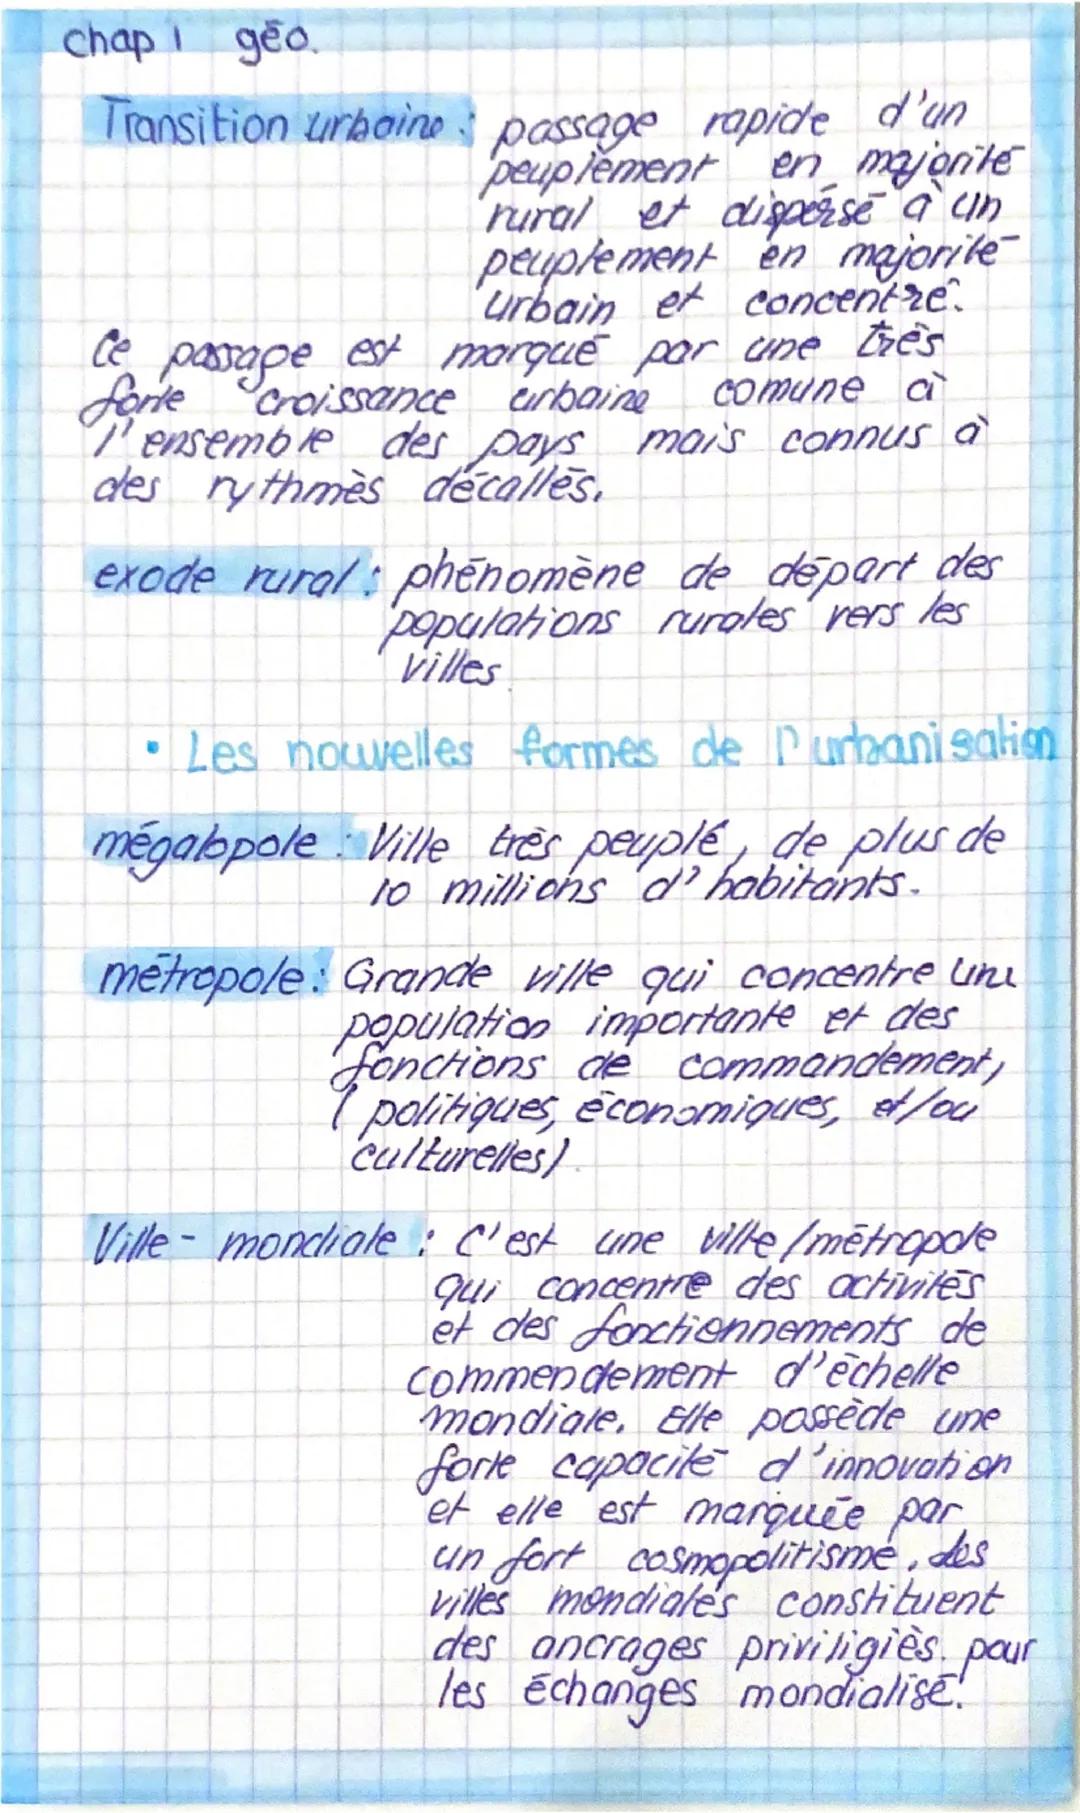 chap 1 géo.
Transition urbaine : passage rapide d'un
peuplement en majorité
rural et dispersé à un
peuplement en majorité
urbain et concentré.
Ce passage est marqué par une très
forte croissance urbaine comune à
l'ensemble des pays mais connus à
des rythmès décallés.
exode rural : phénomène de départ des
populations rurales vers les
villes
• Les nouvelles formes de l'urbanisation
mégalopole : Ville très peuplé, de plus de
10 millions d'habitants.
métropole : Grande ville qui concentre une
population importante et des
fonctions de commandement,
(politiques, économiques, et/ou
culturelles)
Ville-mondiale : C'est une ville/métropole
qui concentre des activités
et des fonctionnements de
commendement d'échelle
mondiale. Elle possède une
forte capacité d'innovation
et elle est marquée par
un fort cosmopolitisme, des
villes mondiales constituent
des ancrages priviligiès pour
les échanges mondialisé.